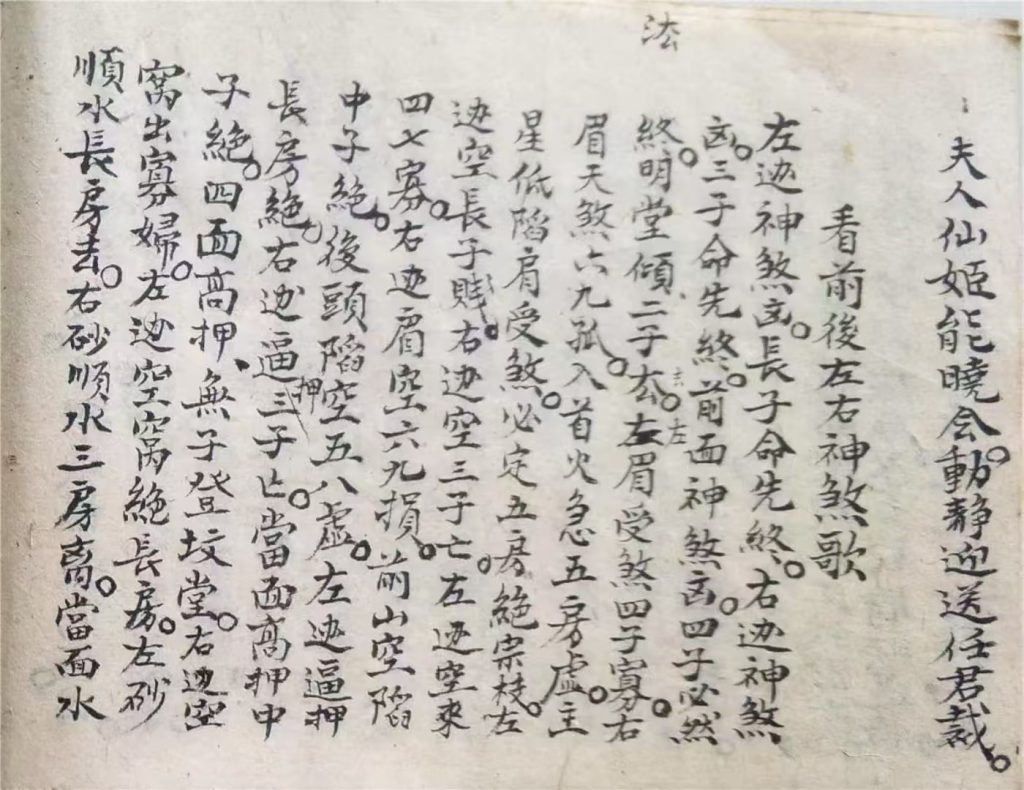 法
夫人仙姬能曉会。動静迎送任君裁。
看前後左右神煞歌
左边神煞凶。長子命先終。右边神煞
凶。三子命先終。前面神煞凶。四子必然
終。明堂傾二子厺。去左左眉受煞四子寡。右
眉天煞六九孤。入首火急五房虛。主
星低陷肩受煞。必定五房絕宗枝。左
边空長子賎。右边空三子亡。左边空來
四七寡。右边眉空六九損。前山空陷
中子絕。後頭陷空五八虛。左边逼押
長房絕。右边逼押三子亡。當面高押中
子絕。四面高押、無子登坟堂。右边空
窩出寡婦。左边空窩絕長房。左砂
順水長房去。右砂順水三房离。當面水